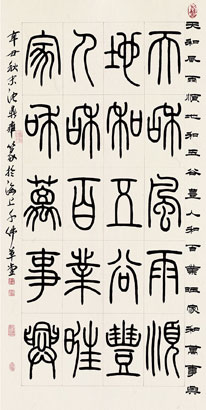 天和風雨順地和五谷豐人和百業旺家和萬事興
天和風雨順
地和五谷豐
人和百業旺
家和萬事興
辛丑秋末沈鼎雍篆於海上千佛草堂